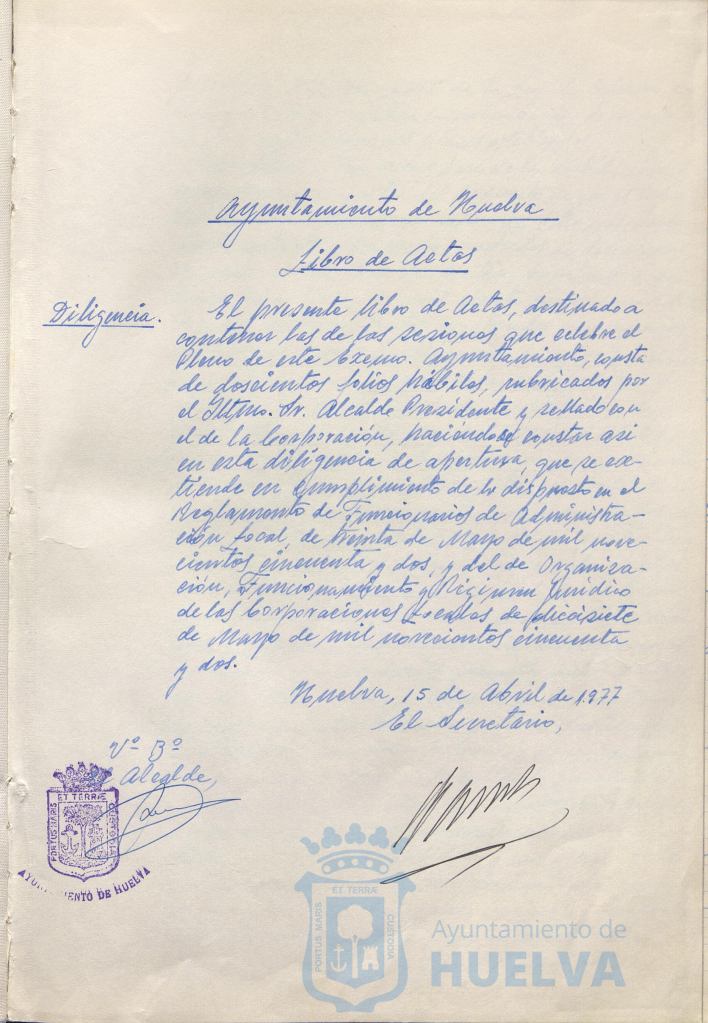 Ayuntamiento de Huelva
Libro de Actas
Diligencia.
El presente libro de Actas, destinado a
contener las de las sesiones que celebre el
Pleno de este Excmo. Ayuntamiento, consta
de doscientos folios hábiles, rubricados por
el Iltmo. Sr. Alcalde Presidente y sellado con
el de la Corporación, haciéndose constar así
en esta diligencia de apertura, que se ex-
tiende en cumplimiento de lo dispuesto en el
Reglamento de Funcionarios de Administra-
ción Local, de treinta de Mayo de mil nove-
cientos cincuenta y dos, y del de Organiza-
ción, Funcionamiento y Régimen Jurídico
de las Corporaciones Locales de diecisiete
de Mayo de mil novecientos cincuenta
y dos.
Huelva, 15 de Abril de 1.977
El Secretario,
Vº Bº
Alcalde,
ET TERRÆ
PORTUS MARIS
CUSTODIA
AYUNTAMIENTO DE HUELVA
ET TERRÆ
PORTUS MARIS
CUSTODIA
Ayuntamiento de
HUELVA